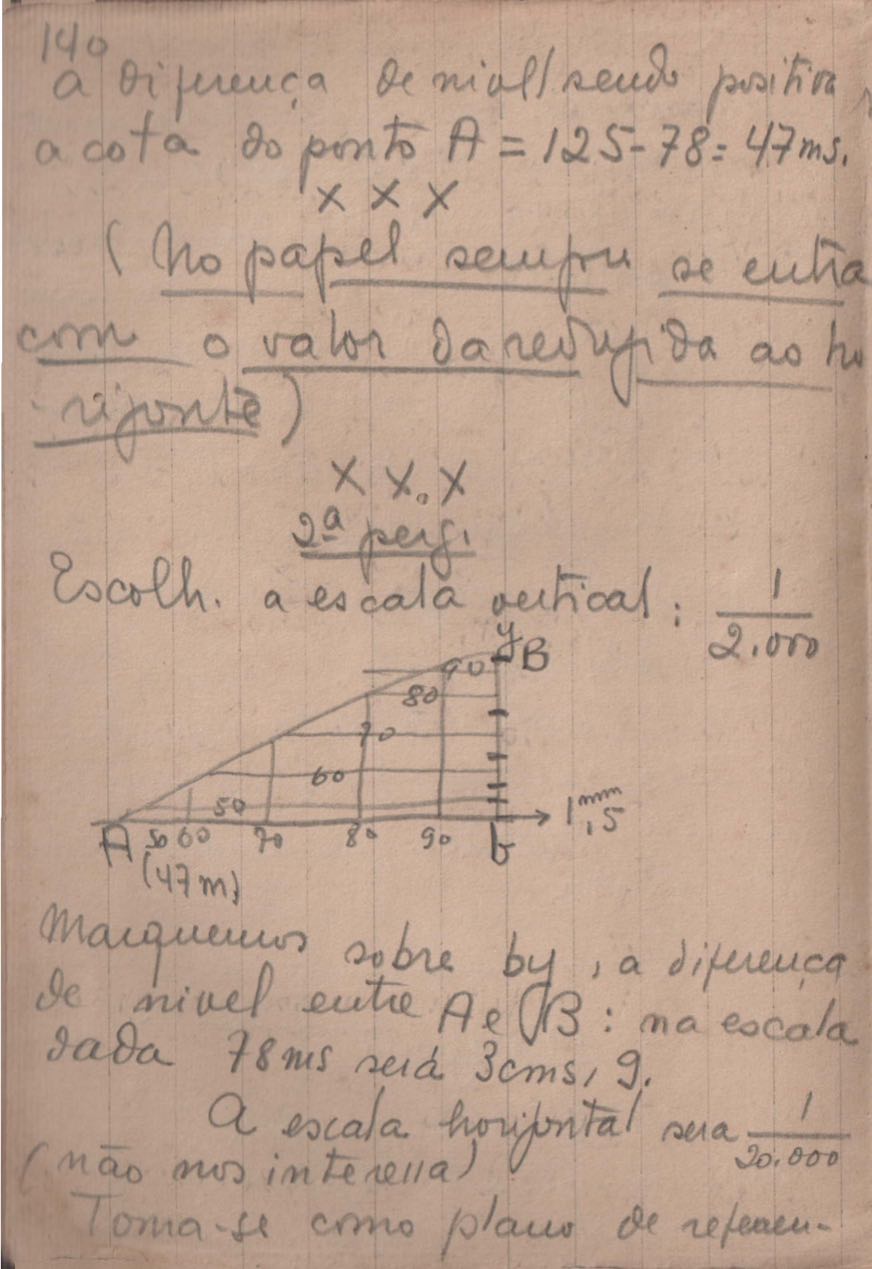 140
A diferença de nivel sendo positiva,
a cota do ponto A = 125 - 78 = 47 ms.
X X X
(No papel sempre se entra
com o valor da reduzida ao ho
rizonte)
X X. X
2ª perg.
Escolh. a escala vertical: 1/2.000
y
B
90
80
70
60
50
1mm,5
A 50 60 70 80 90 b
(47 m)
Marquemos sobre by, a diferença
de nivel entre A e B: na escala
dada 78 ms será 3 cms, 9.
A escala horizontal sera 1/20.000
(não nos interessa)
Toma-se como plano de referen-